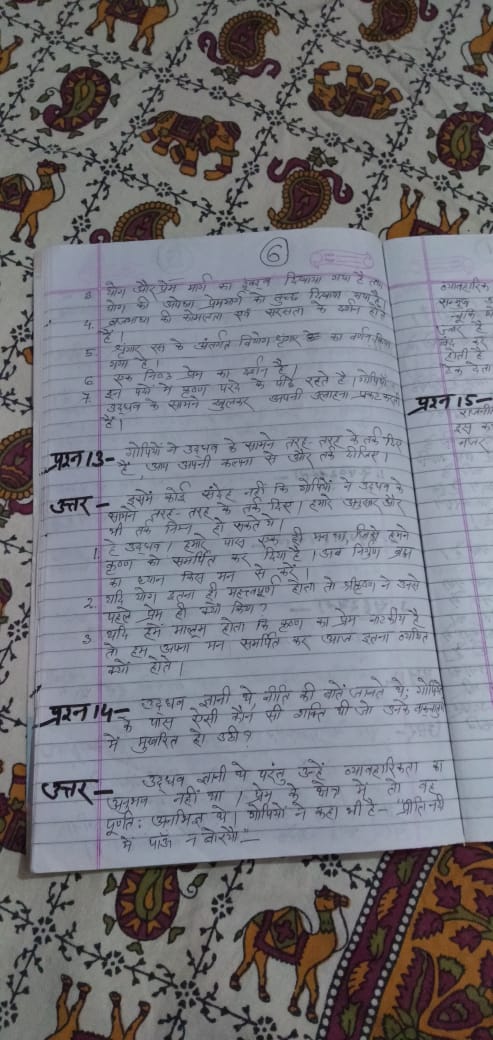 6
3. योग और प्रेम मार्ग का द्वन्द्व दिखाया गया है तथा
योग की अपेक्षा प्रेममार्ग को दिखाया गया है।
4. ब्रजभाषा की कोमलता एवं सरसता के दर्शन होते
हैं
5. श्रृंगार रस के अंतर्गत वियोग श्रृंगार का वर्णन किया
गया है।
6. एक निष्ठ प्रेम का दर्शन है।
7. इन पदों में कृष्ण परदे के पीछे रहते हैं। गोपियाँ
उद्धव के सामने खुलकर अपनी उलाहना प्रकट करती
हैं।
प्रश्न 13- गोपियों ने उद्धव के सामने तरह-तरह के तर्क दिए
हैं, आप अपनी कल्पना से और तर्क दीजिए।
उत्तर- इसमें कोई संदेह नहीं कि गोपियों ने उद्धव के
सामने तरह-तरह के तर्क दिए। हमारे अनुसार और
भी तर्क निम्न हो सकते थे।
1. हे उद्धव! हमारे पास एक ही मन था, जिसे हमने
कृष्ण को समर्पित कर दिया है। अब निर्गुण ब्रह्म
का ध्यान किस मन से करें।
2. यदि योग इतना ही महत्वपूर्ण होता तो श्रीकृष्ण ने उनसे
पहले प्रेम ही क्यों किया?
3. यदि हमें मालूम होता कि कृष्ण का प्रेम है
तो हम अपना मन समर्पित कर आज इतना व्यथित
क्यों होते।
प्रश्न 14- उद्धव ज्ञानी थे, नीति की बातें जानते थे; गोपियों
के पास ऐसी कौन सी शक्ति थी जो उनके
में मुखरित हो उठी?
उत्तर- उद्धव ज्ञानी थे परंतु उन्हें व्यावहारिकता का
अनुभव नहीं था। प्रेम के क्षेत्र में तो वह
पूर्णत: अनभिज्ञ थे। गोपियों ने कहा भी है- "प्रीति नदी
में पाऊँ न बोरयौ"-
व्यावहारिक
होती है
प्रश्न 15-
इस क